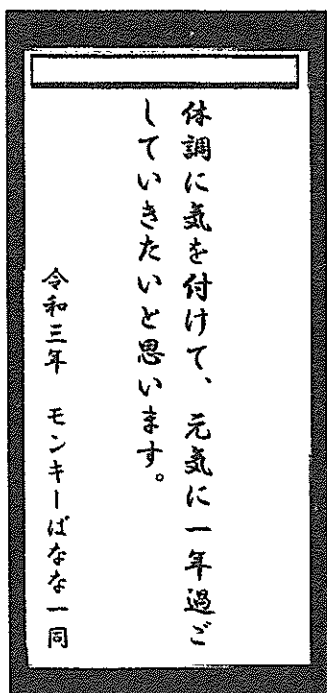 体調に気を付けて、元気に一年過ご
していきたいと思います。
令和三年　モンキーばなな一同